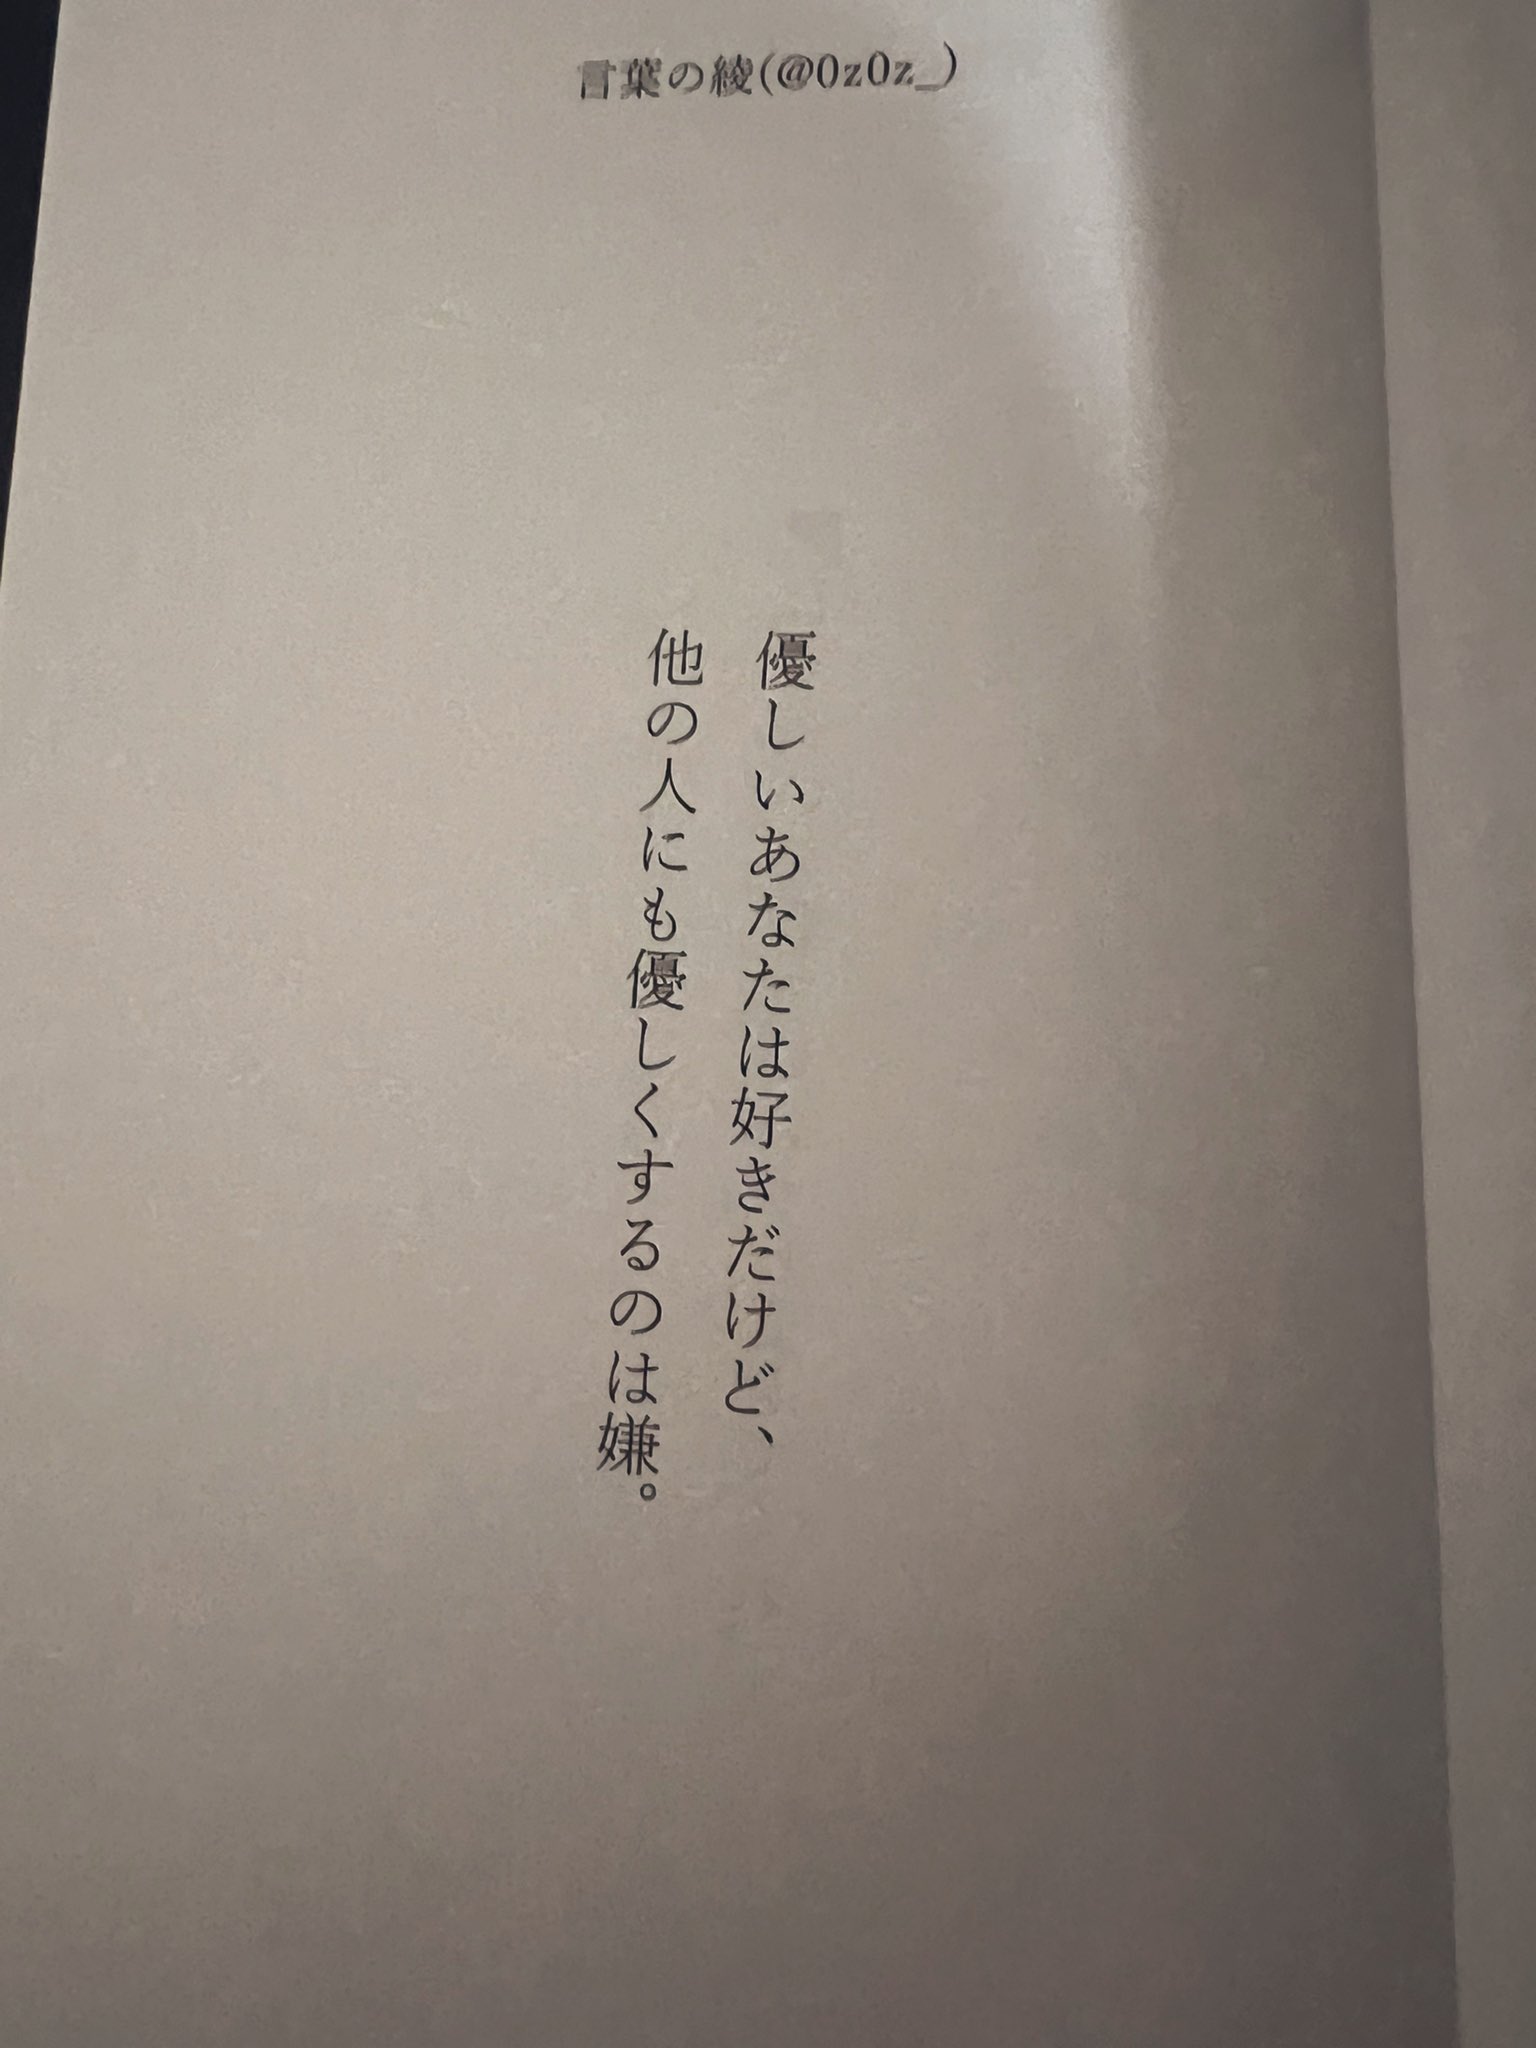 言葉の綾(@0z0z_)
優しいあなたは好きだけど、
他の人にも優しくするのは嫌。